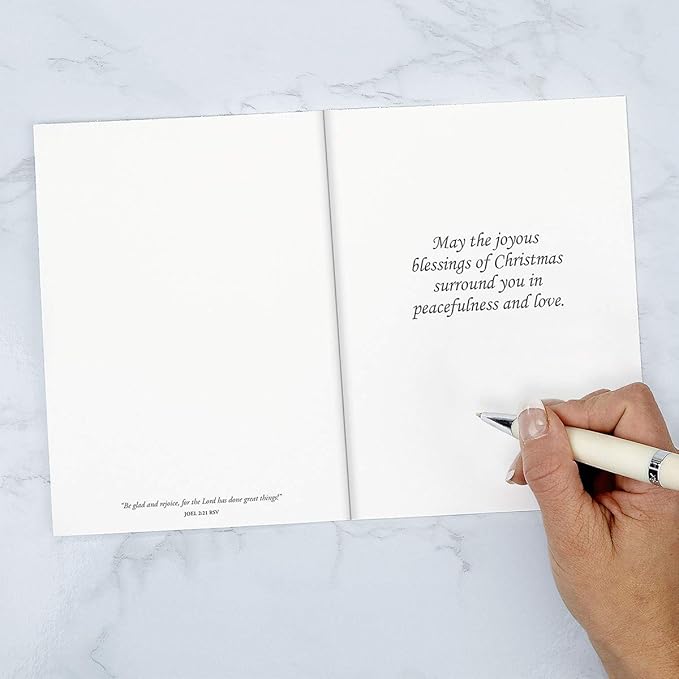 "Be glad and rejoice, for the Lord has done great things!"
JOEL 2:21 RSV
May the joyous
blessings of Christmas
surround you in
peacefulness and love.